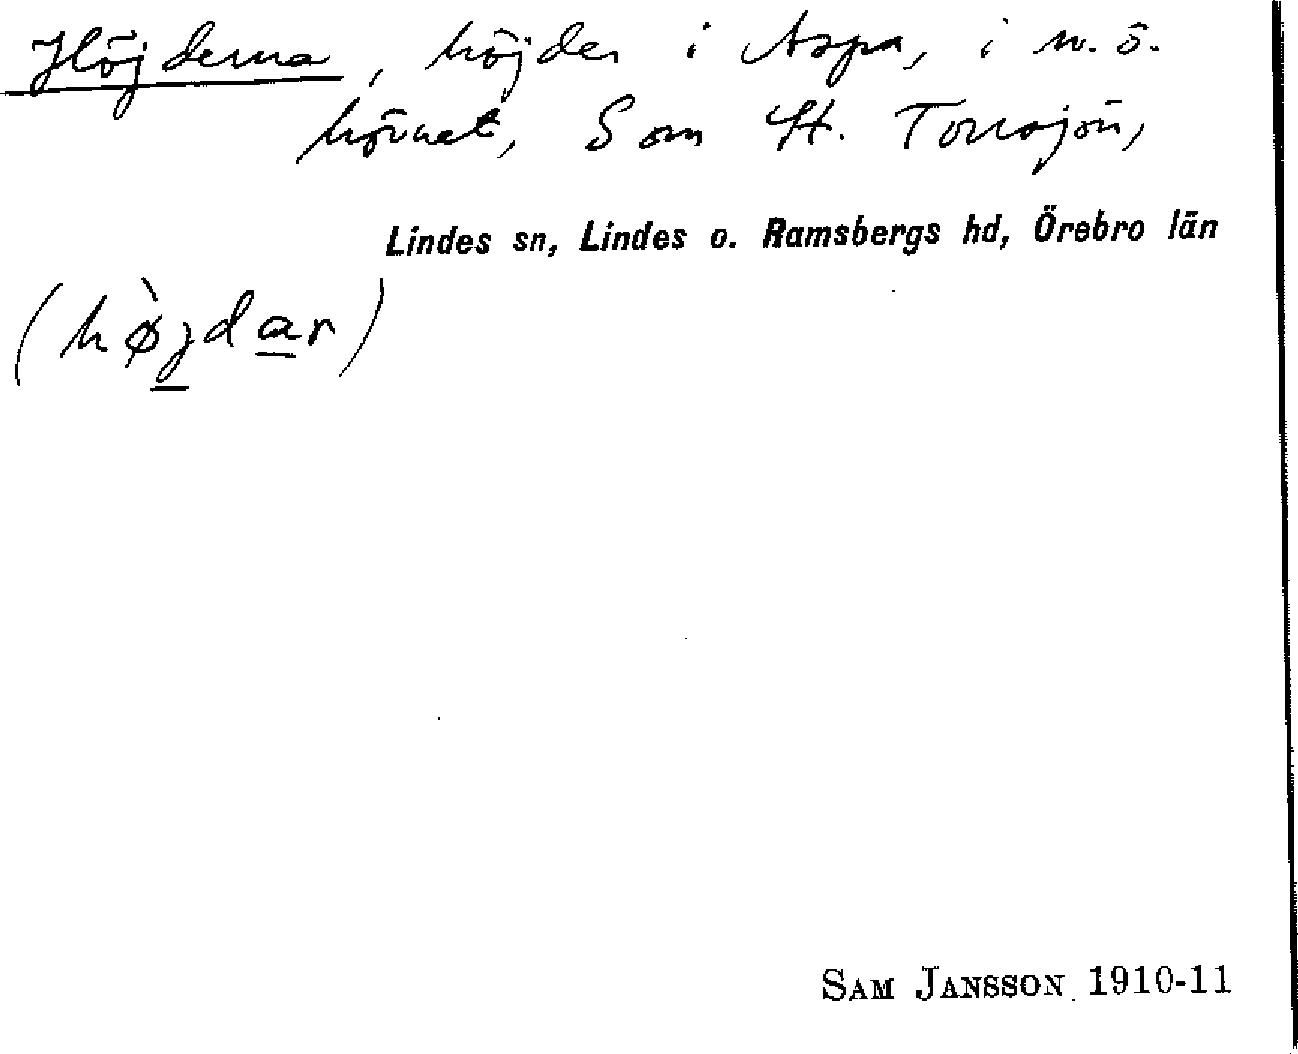 Höjderna, höjder i Aspa, i n.ö.
hörnet, S om St. Torrsjön,
Lindes sn, Lindes o. Ramsbergs hd, Örebro län
(hø̀jdar)
SAM JANSSON 1910-11